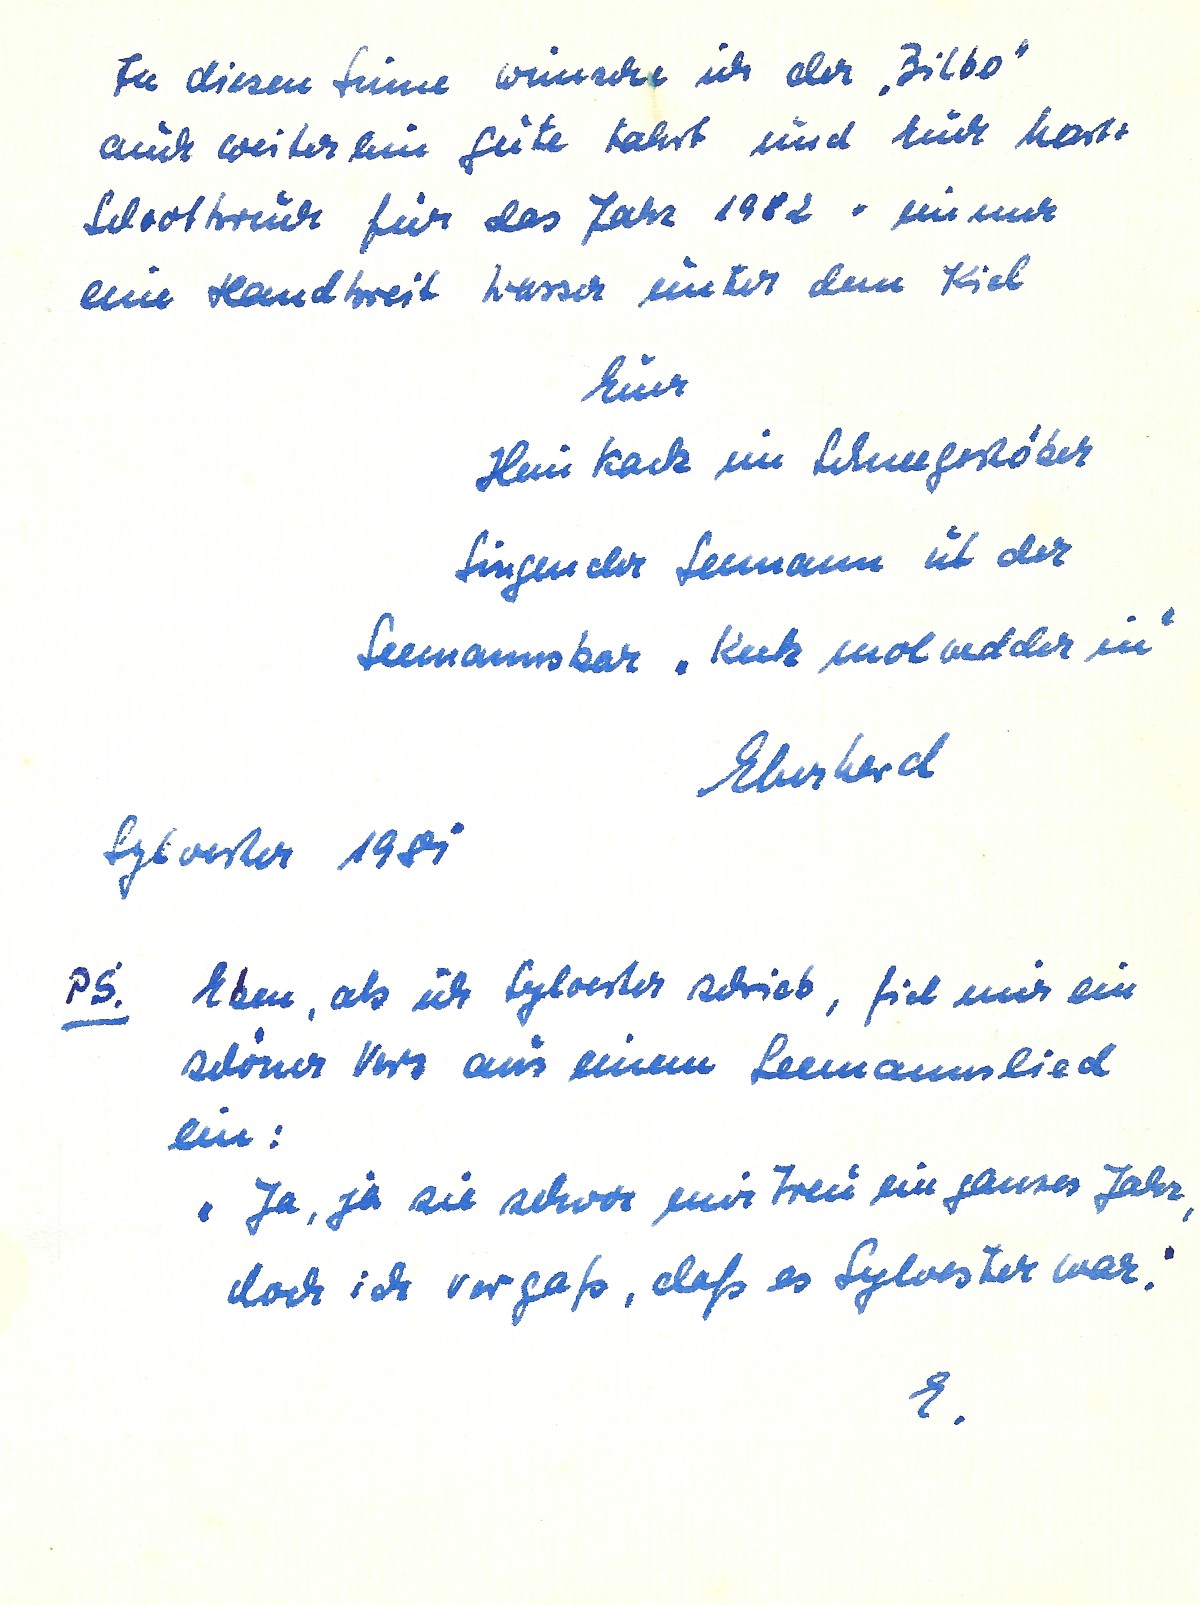 In diesen Sinne wünsche ich der „Bilbo"
auch weiterhin gute Fahrt und Euch Mast-
Schootbruch für das Jahr 1982 - immer
eine Handbreit Wasser unter dem Kiel
Euer
Hein Kack im Schneegestöber
Singender Seemann üt der
Seemannsbar „Kiek mol wedder in"
Eberhard
Sylvester 1981
PS. Eben, als ich Sylvester schrieb, fiel mir ein
schöner Vers aus einem Seemannslied
ein:
„Ja, ja sie schwor mir Treu ein ganzes Jahr,
doch ich vergaß, daß es Sylvester war."
E.